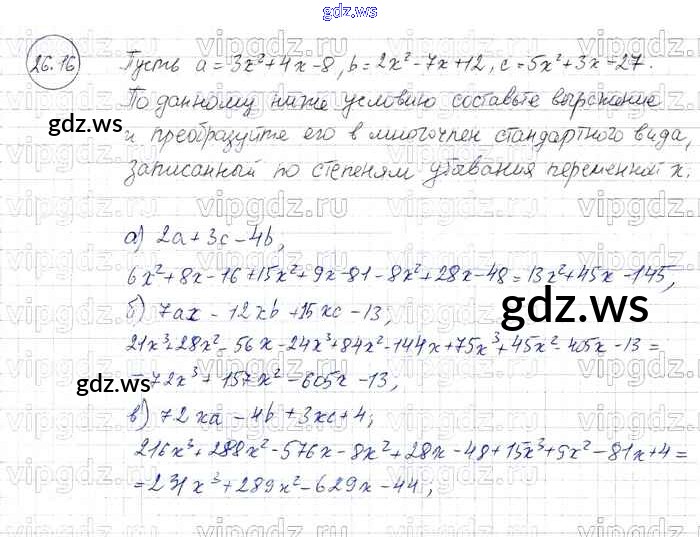 gdz.ws
26.16
Пусть a=3x²+4x-8, b=2x²-7x+12, c=5x²+3x-27.
По данному ниже условию составьте выражение
и преобразуйте его в многочлен стандартного вида,
записанный по степеням убывания переменной x.
а) 2a+3c-4b;
6x²+8x-16+15x²+9x-81-8x²+28x-48=13x²+45x-145;
б) 7ax-12xb+15xc-13;
21x³+28x²-56x-24x³+84x²-144x+75x³+45x²-405x-13=
=72x³+157x²-605x-13;
в) 72xa-4b+3xc+4;
216x³+288x²-576x-8x²+28x-48+15x³+9x²-81x+4=
=231x³+289x²-629x-44;
gdz.ws
gdz.ws
gdz.ws
gdz.ws
vipgdz.ru